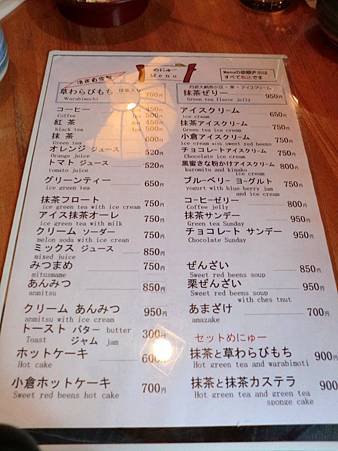 めにゅー
Menu
草わらびもち 700円
Warabimochi
コーヒー 450
Coffee Ice 500
紅茶 450
black tea Ice 500
抹茶 600
オレンジ ジュース 520
Orange juice
トマト ジュース 520
tomato juice
グリーンティー 650
ice green tea
抹茶フロート 750
ice green tea with ice cream
アイス抹茶オーレ 750
ice green tea with milk
クリーム ソーダー 750
melon soda with ice cream
ミックス ジュース 850
mixed juice
みつまめ 750円
mitumame
あんみつ 850円
anmitsu
クリーム あんみつ 950円
anmitsu with ice cream
トースト バター butter 300円
Toast ジャム jam
ホットケーキ 600円
Hot cake
小倉ホットケーキ 700円
Sweet red beens hot cake
抹茶ゼリー 950円
Green tea flavor jelly
アイスクリーム
ice cream
抹茶アイスクリーム
Green tea ice cream
小倉アイスクリーム
ice cream with sweet red beens
チョコレートアイスクリーム
Chocolate ice cream
黒蜜きな粉かけアイスクリーム 800円
kuromitu and kinako
ice cream
ブルーベリー ヨーグルト 750円
yogurt with blue berry jam
and ice cream
コーヒーゼリー 800円
Coffee jelly
抹茶サンデー 950円
Green tea Sunday
チョコレート サンデー 950円
Chocolate Sunday
ぜんざい 850円
Sweet red beens soup
栗ぜんざい 950円
Sweet red beens soup
with ches tnut
あまざけ 700円
amazake
セットめにゅー
抹茶と草わらびもち 900円
Hot green tea and warabimoti
抹茶と抹茶カステラ 900円
Hot green tea and green tea
sponge cake